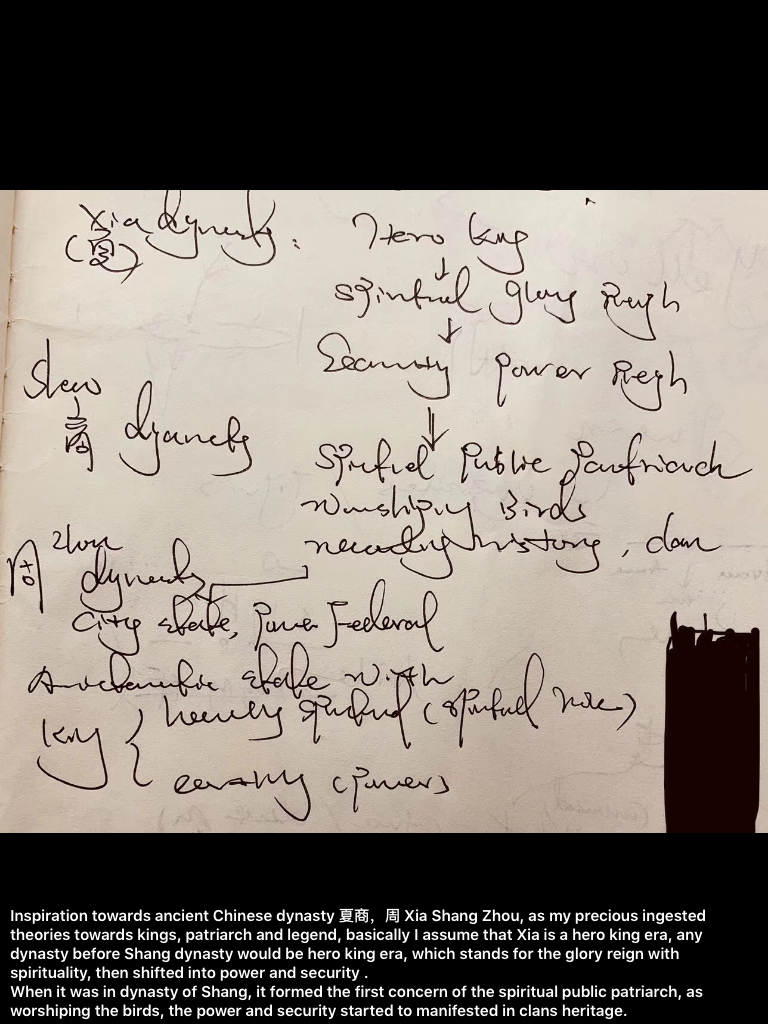 Xia dynasty :
(夏)
Hero King
↓
Spiritual glory Reigh
↓
Security power Reigh
⇓
商 dynasty
Spiritual Public
Birds
history,
周
dynasty
City state, Federal
state with
King { (spiritual
(Power)
Inspiration towards ancient Chinese dynasty 夏商，周 Xia Shang Zhou, as my precious ingested
theories towards kings, patriarch and legend, basically I assume that Xia is a hero king era, any
dynasty before Shang dynasty would be hero king era, which stands for the glory reign with
spirituality, then shifted into power and security .
When it was in dynasty of Shang, it formed the first concern of the spiritual public patriarch, as
worshiping the birds, the power and security started to manifested in clans heritage.